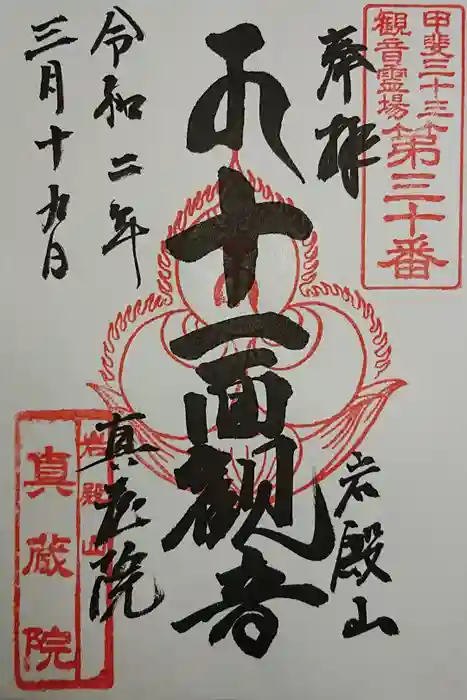 甲斐三十三
観音霊場
第三十番
奉拝
岩殿山
十一面観音
令和二年
三月十九日
真蔵院
岩殿山
真蔵院